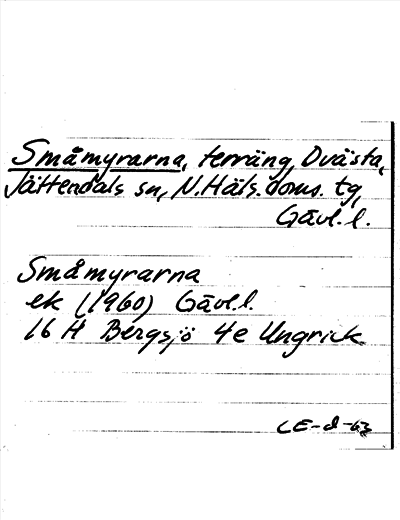 Småmyrarna, terräng, Dvästa,
Jättendals sn, N. Häls. doms. tg,
Gävl. l.
Småmyrarna
ek (1960) Gävl. l.
16 H Bergsjö 4e Ungrick.
CE-d-63